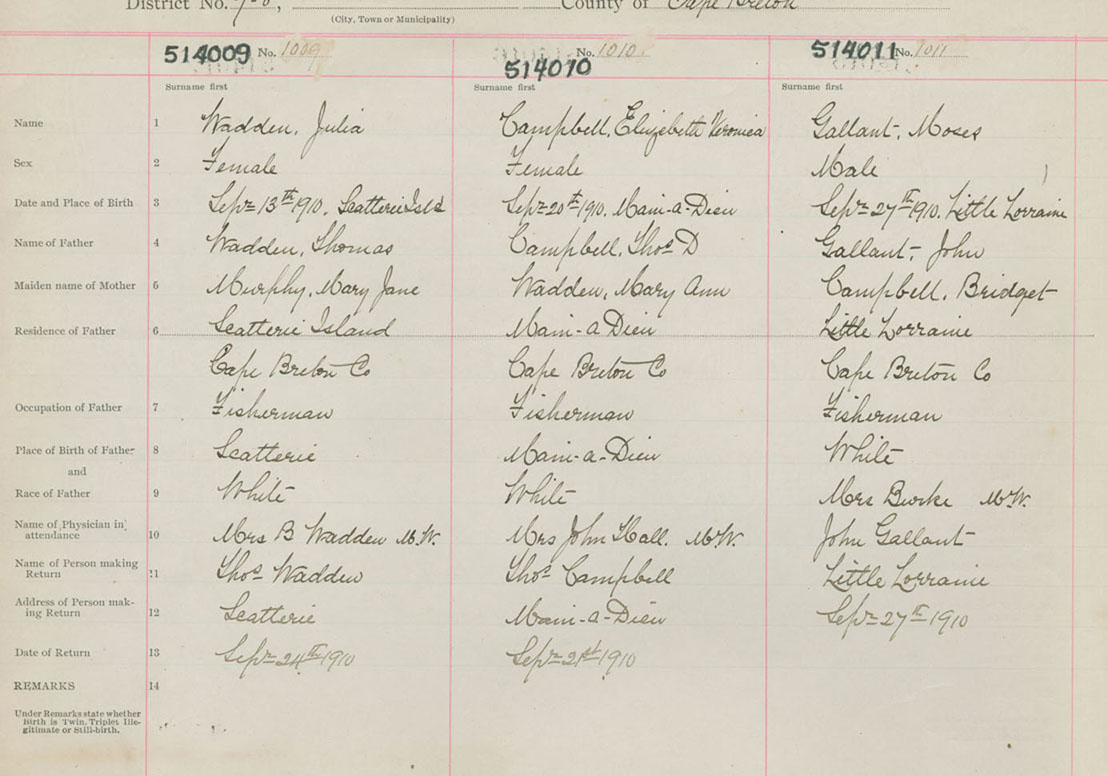 District No. County of Cape Breton
(City, Town or Municipality)
514009 No. 1009 514010 No. 1010 514011 No. 1011
Surname first Surname first Surname first
Name 1 Wadden, Julia Campbell, Elizabeth Veronica Gallant, Moses
Sex 2 Female Female Male
Date and Place of Birth 3 Sepr 13th 1910, Scatterie Isld Sepr 20th 1910, Main-a-Dieu Sepr 27th 1910, Little Lorraine
Name of Father 4 Wadden, Thomas Campbell, Thos D Gallant, John
Maiden name of Mother 5 Murphy, Mary Jane Wadden, Mary Ann Campbell, Bridget
Residence of Father 6 Scatterie Island Main-a Dieu Little Lorraine
Cape Breton Co Cape Breton Co Cape Breton Co
Occupation of Father 7 Fisherman Fisherman Fisherman
Place of Birth of Father 8 Scatterie Main-a-Dieu White
and
Race of Father 9 White White Mrs Burke M.W.
Name of Physician in attendance 10 Mrs B Wadden M.W. Mrs John Hall. M.W. John Gallant
Name of Person making Return 11 Thos Wadden Thos Campbell Little Lorraine
Address of Person mak-ing Return 12 Scatterie Main-a-Dieu Sepr 27th 1910
Date of Return 13 Sepr 24th 1910 Sepr 21st 1910
REMARKS 14
Under Remarks state whether
Birth is Twin, Triplet Ille-
gitimate or Still-birth.